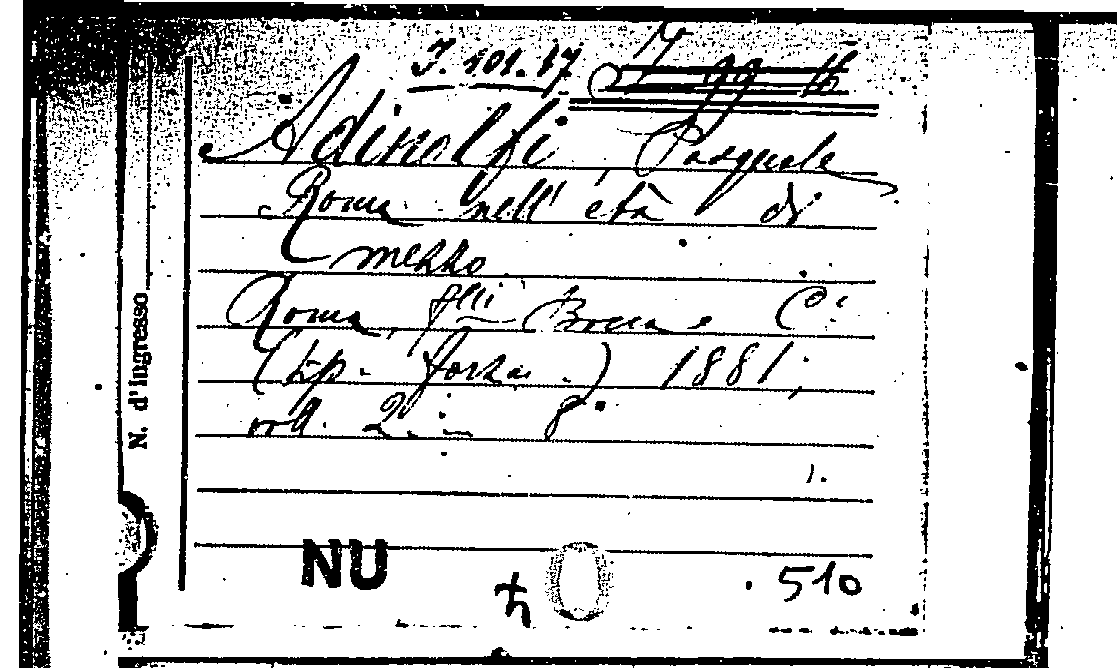 J. 101. 17
Adinolfi, Pasquale
Roma nell' età di
mezzo
Roma, f.lli Bocca e C.i
(tip. Forza.) 1881;
vol. 2. in 8°
1.
N. d'ingresso
NU
510